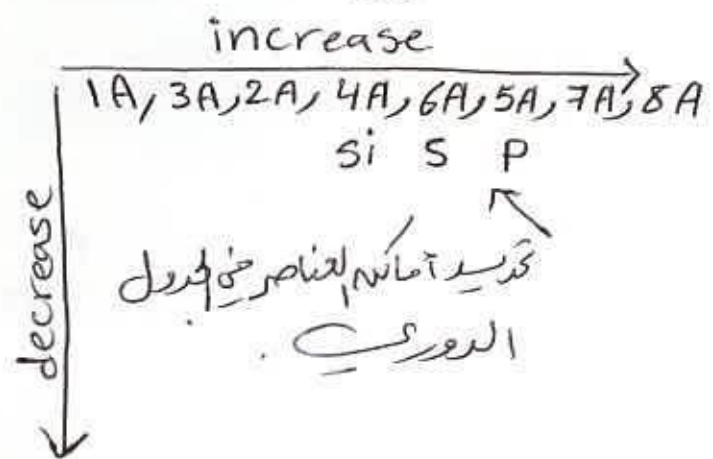 increase
1A, 3A, 2A, 4A, 6A, 5A, 7A, 8A
Si S P
decrease
تحديد أماكن العناصر في الجدول
الدوري.